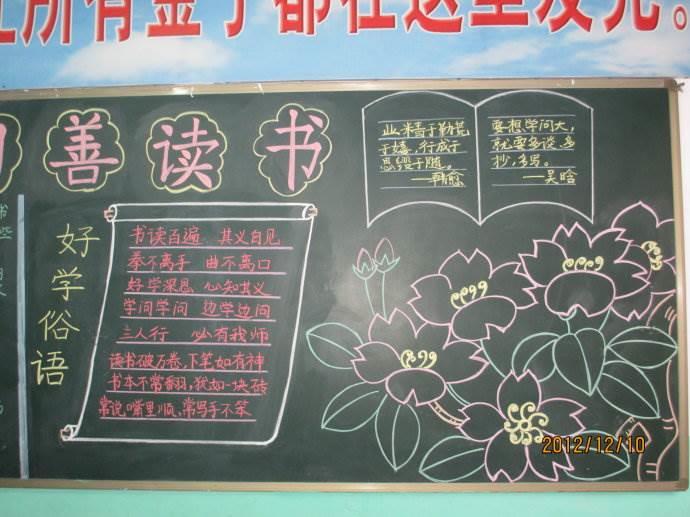 所有金子都在这里发光。
善读书
好学俗语
书读百遍 其义自见
拳不离手 曲不离口
好学深思 心知其义
学问学问 边学边问
三人行 必有我师
读书破万卷,下笔如有神
书本不常翻,犹如一块砖
常说嘴里顺、常写手不笨
业精于勤荒
于嬉,行成于
思毁于随。
——韩愈
要想学问大,
就要多读、多
抄,多写。
——吴晗
2012/12/10